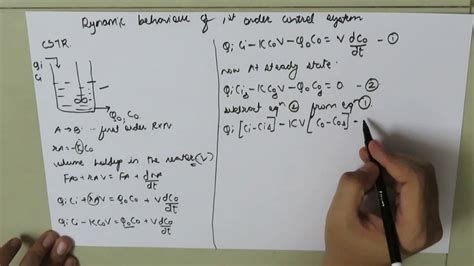 Dynamic behaviour of 1st order control system
CSTR
Qi
Ci
Qo, Co
A → B: - first order RXN
rA = -kCo
volume holdup in the reactor (V)
FAo + rAV = FA + dnA/dt
QiCi + rAV = QoCo + V dCo/dt
QiCi - KCoV = QoCo + V dCo/dt
QiCi - KCoV - QoCo = V dCo/dt - ①
now At steady state:
QiCis - KCosV - QoCos = 0 - ②
subtract eqn ② from eqn ①
Qi [Ci - Cis] - KV [Co - Cos] -